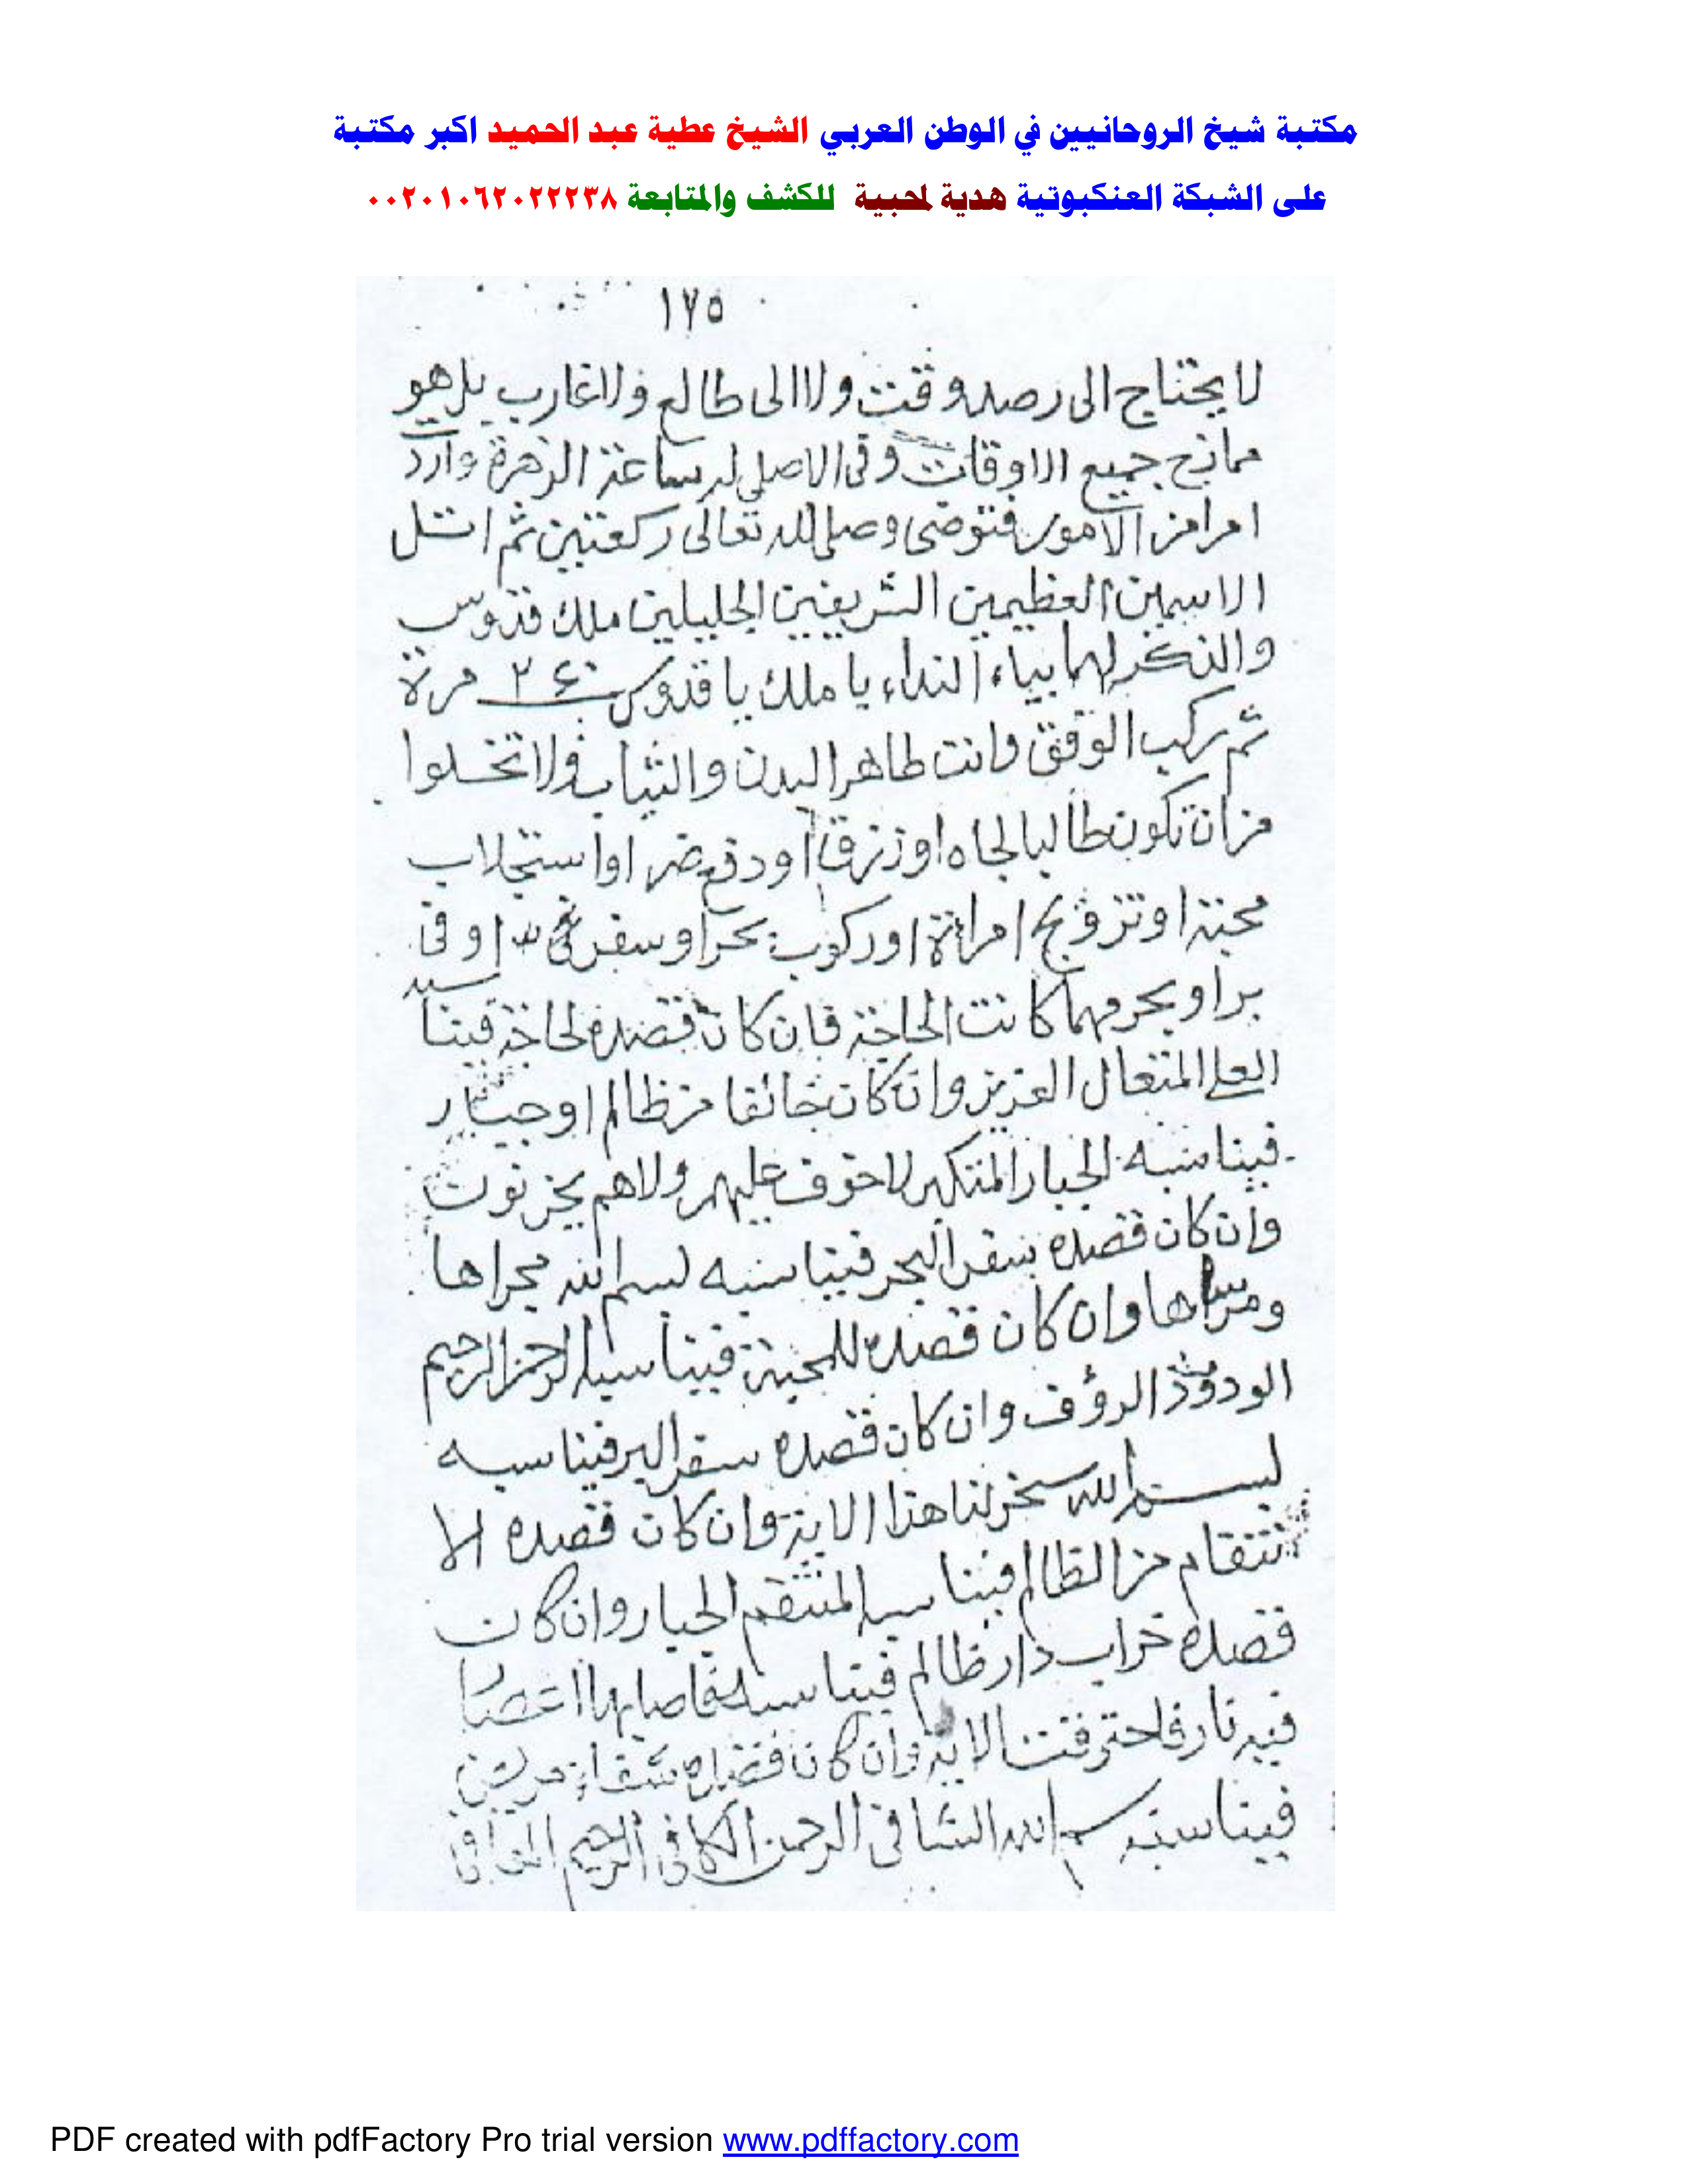 مكتبة شيخ الروحانيين في الوطن العربي الشيخ عطية عبد الحميد اكبر مكتبة
على الشبكة العنكبوتية هدية لمحبية للكشف والمتابعة ٠٠٢٠١٠٦٢٠٢٢٢٣٨
١٧٥
لا يحتاج الى رصد وقت ولا الى طالع ولا غارب بل هو
جميع الاوقات وفى الاصلى له ساعة الزهرة
امرا من الامور فتوضى وصلى لله تعالى ركعتين ثم اتل
الاسمين العظيمين الشريفين الجليلين ملك قدوس
والذكر لهما بياء النداء يا ملك يا قدوس مرة
ثم ركب الوفق وانت طاهر البدن والثياب ولا تخلوا
من ان تكون طالبا لجاه او رزقا او دفع ضر او استجلاب
محبة او تزويج امراة او ركوب بحر او سفر او فى
بر او بحر مهما كانت الحاجة فان كان قصده لحاجة فيناسبه
العلى المتعال العزيز وان كان خائفا من ظالم او جبار
فيناسبه الجبار المتكبر لا خوف عليهم ولا هم يحزنون
وان كان قصده سفر البحر فيناسبه بسم الله مجراها
ومرساها وان كان قصده للمحبة فيناسبه الرحمن الرحيم
الودود الرؤف وان كان قصده سفر البر فيناسبه
بسم الله سخر لنا هذا الاية وان كان قصده الا
نتقام من الظالم فيناسبه المنتقم الجبار وان كان
قصده خراب دار ظالم فيناسبه فاصابها اعصار
فيه نار فاحترقت الاية وان كان قصده شفاء مريض
فيناسبه بسم الله الشافى الرحمن الكافى الرحيم
PDF created with pdfFactory Pro trial version www.pdffactory.com